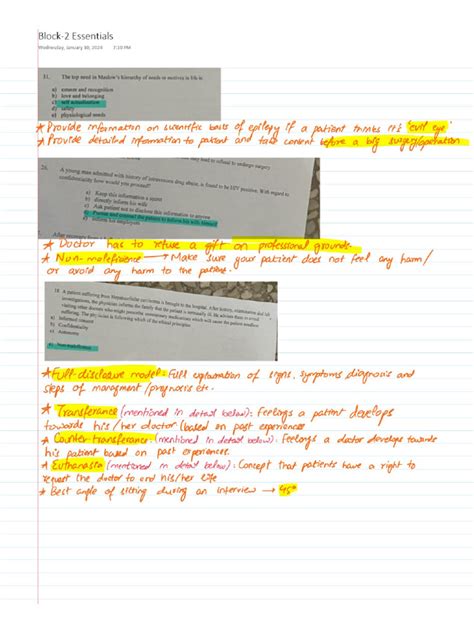 Block-2 Essentials
Wednesday, January 10, 2024 7:10 PM
31. The top need in Maslow's hierarchy of needs or motives in life is:
a) esteem and recognition
b) love and belonging
c) self actualization
d) safety
e) physiological needs
★ Provide information on scientific basis of epilepsy if a patient thinks it's "evil eye"
★ Provide detailed information to patient and take consent before a big surgery/operation
may lead to refusal to undergo surgery
26. A young man admitted with history of intravenous drug abuse, is found to be HIV positive. With regard to
confidentiality how would you proceed?
a) Keep this information a secret
b) directly inform his wife
c) Ask patient not to disclose this information to anyone
d) Permit and counsel the patient to inform his wife himself
e) inform his employers
★ Doctor has to refuse a gift on professional grounds.
★ Non-maleficience → Make sure your patient does not feel any harm/
or avoid any harm to the patient.
18. A patient suffering from
investigations, the physician informs the family that the patient is terminally ill. He advises them to avoid
visiting other doctors who might prescribe unnecessary medications which will cause the patient needless
suffering. The physician is following which of the ethical principles
a) Informed consent
b) Confidentiality
c) Autonomy
e) Non-maleficence
★ Full-disclosure model: Full explanation of signs, symptoms diagnosis and
steps of managment /prognosis etc.
★ Transferance (mentioned in detail below): Feelings a patient develops
towards his/her doctor (based on past experiences
★ Counter transferance: (mentioned in detail below): Feelings a doctor develops towards
his patient based on past experiences.
★ Euthanasia (mentioned in detail below): Concept that patients have a right to
request the doctor to end his/her life
★ Best angle of sitting during an interview → 45°